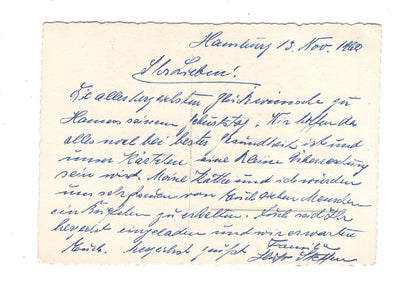 Hamburg 13. Nov. 1960
Ihr Lieben!
Die allerherzlichsten Glückwünsche zu
Hannes seinem Geburtstag. Wir hoffen das
alles noch bei bester Gesundheit ist und
unser Kärtchen eine kleine Überraschung
sein wird. Meine Käthe und ich würden
uns sehr freuen von Euch lieben Menschen
ein Brieflein zu erhalten. Auch seid Ihr
herzlichst eingeladen und wir erwarten
Euch. Herzlichst grüßt Familie